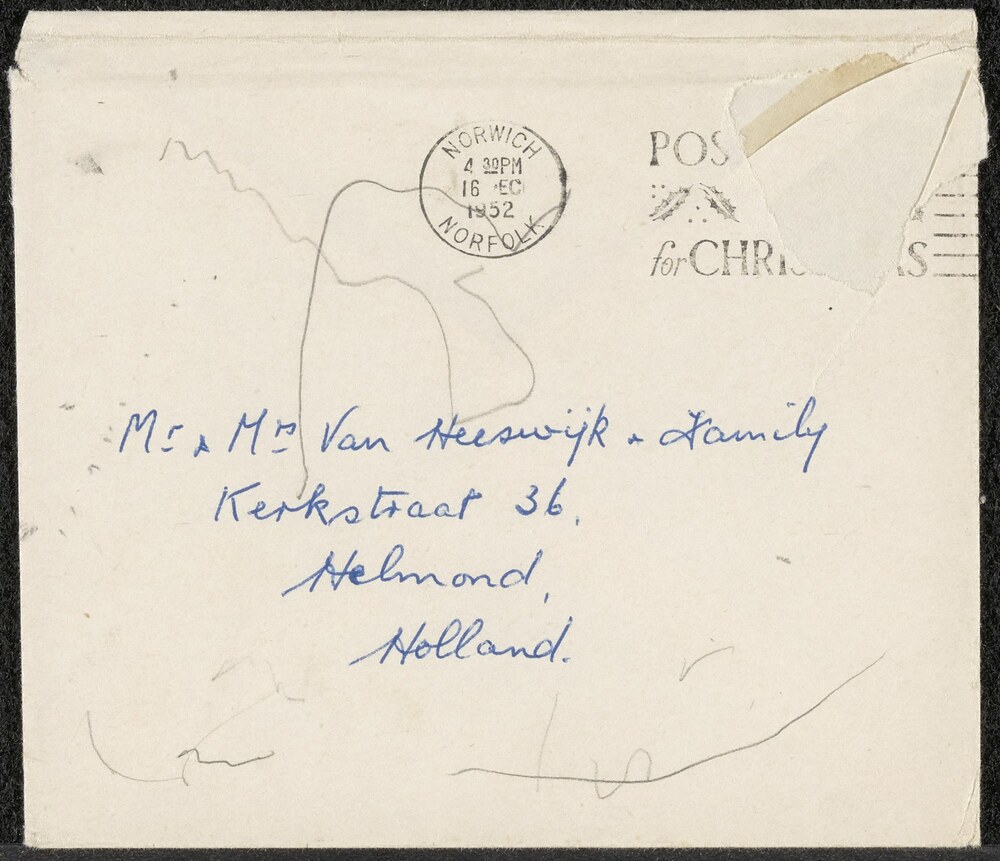 NORWICH
4 30PM
16 EC
1952
NORFOLK
POS
for CHRIS AS
Mr & Mrs Van Heeswijk & Family
Kerkstraat 36.
Helmond,
Holland.